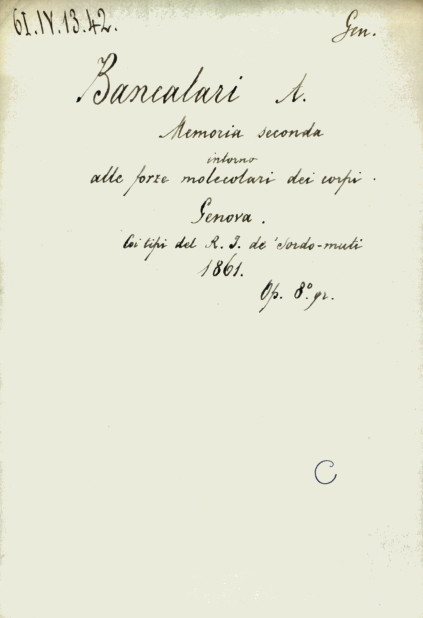 61.IV.13.42.
Gen.
Bancalari A.
Memoria seconda
intorno
alle forze molecolari dei corpi.
Genova.
Coi tipi del R. I. de' Sordo-muti
1861.
Op. 8º gr.
C